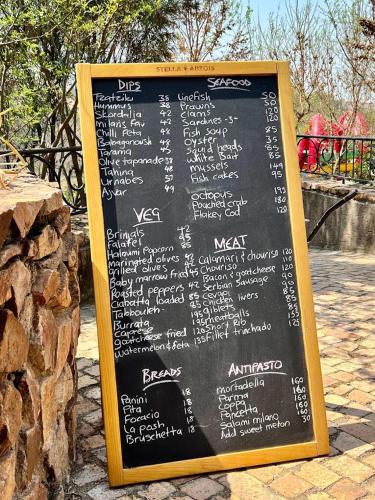 STELLA ARTOIS
DIPS
Tzatziki 38
Hummus 38
Skordalia 42
Milaris Fav 42
Chilli Feta 48
Babaganoush 48
Tarama 45
Olive tapanade 38
Tahina 48
Urnabes 57
Ajvar 49
SEAFOOD
Linefish 50
Prawns 30
Clams 120
Sardines -3- 120
Fish soup 85
Oyster 35
Squid heads 55
White Bait 85
Mussels 149
Fish cakes 95
Octopus 195
Poached Crab 180
Flakey Cod 120
VEG
Brinjals 42
Falafel 45
Haloumi Popcorn
marinated Olives 42
Grilled Olives 42
Baby marrow fried 45
Roasted peppers 42
Ciabatta loaded 85
Tabbouleh
Burrata 195
Caprese 195
Goatcheese fried 120
Watermelon & feta 135
MEAT
Calamari & chouriso 120
Chouriso 110
Bacon & goatcheese 120
Serbian Sausage 90
Cevapi
Chicken livers
giblets
meatballs
Short Rib
Fillet trinchado 155
BREADS
Panini 18
Pita 18
Focacio 18
La posh 18
Bruschetta 18
ANTIPASTO
mortadella 160
Parma 160
Coppa 160
Pancetta 160
Salami milano 160
Add sweet melon 30